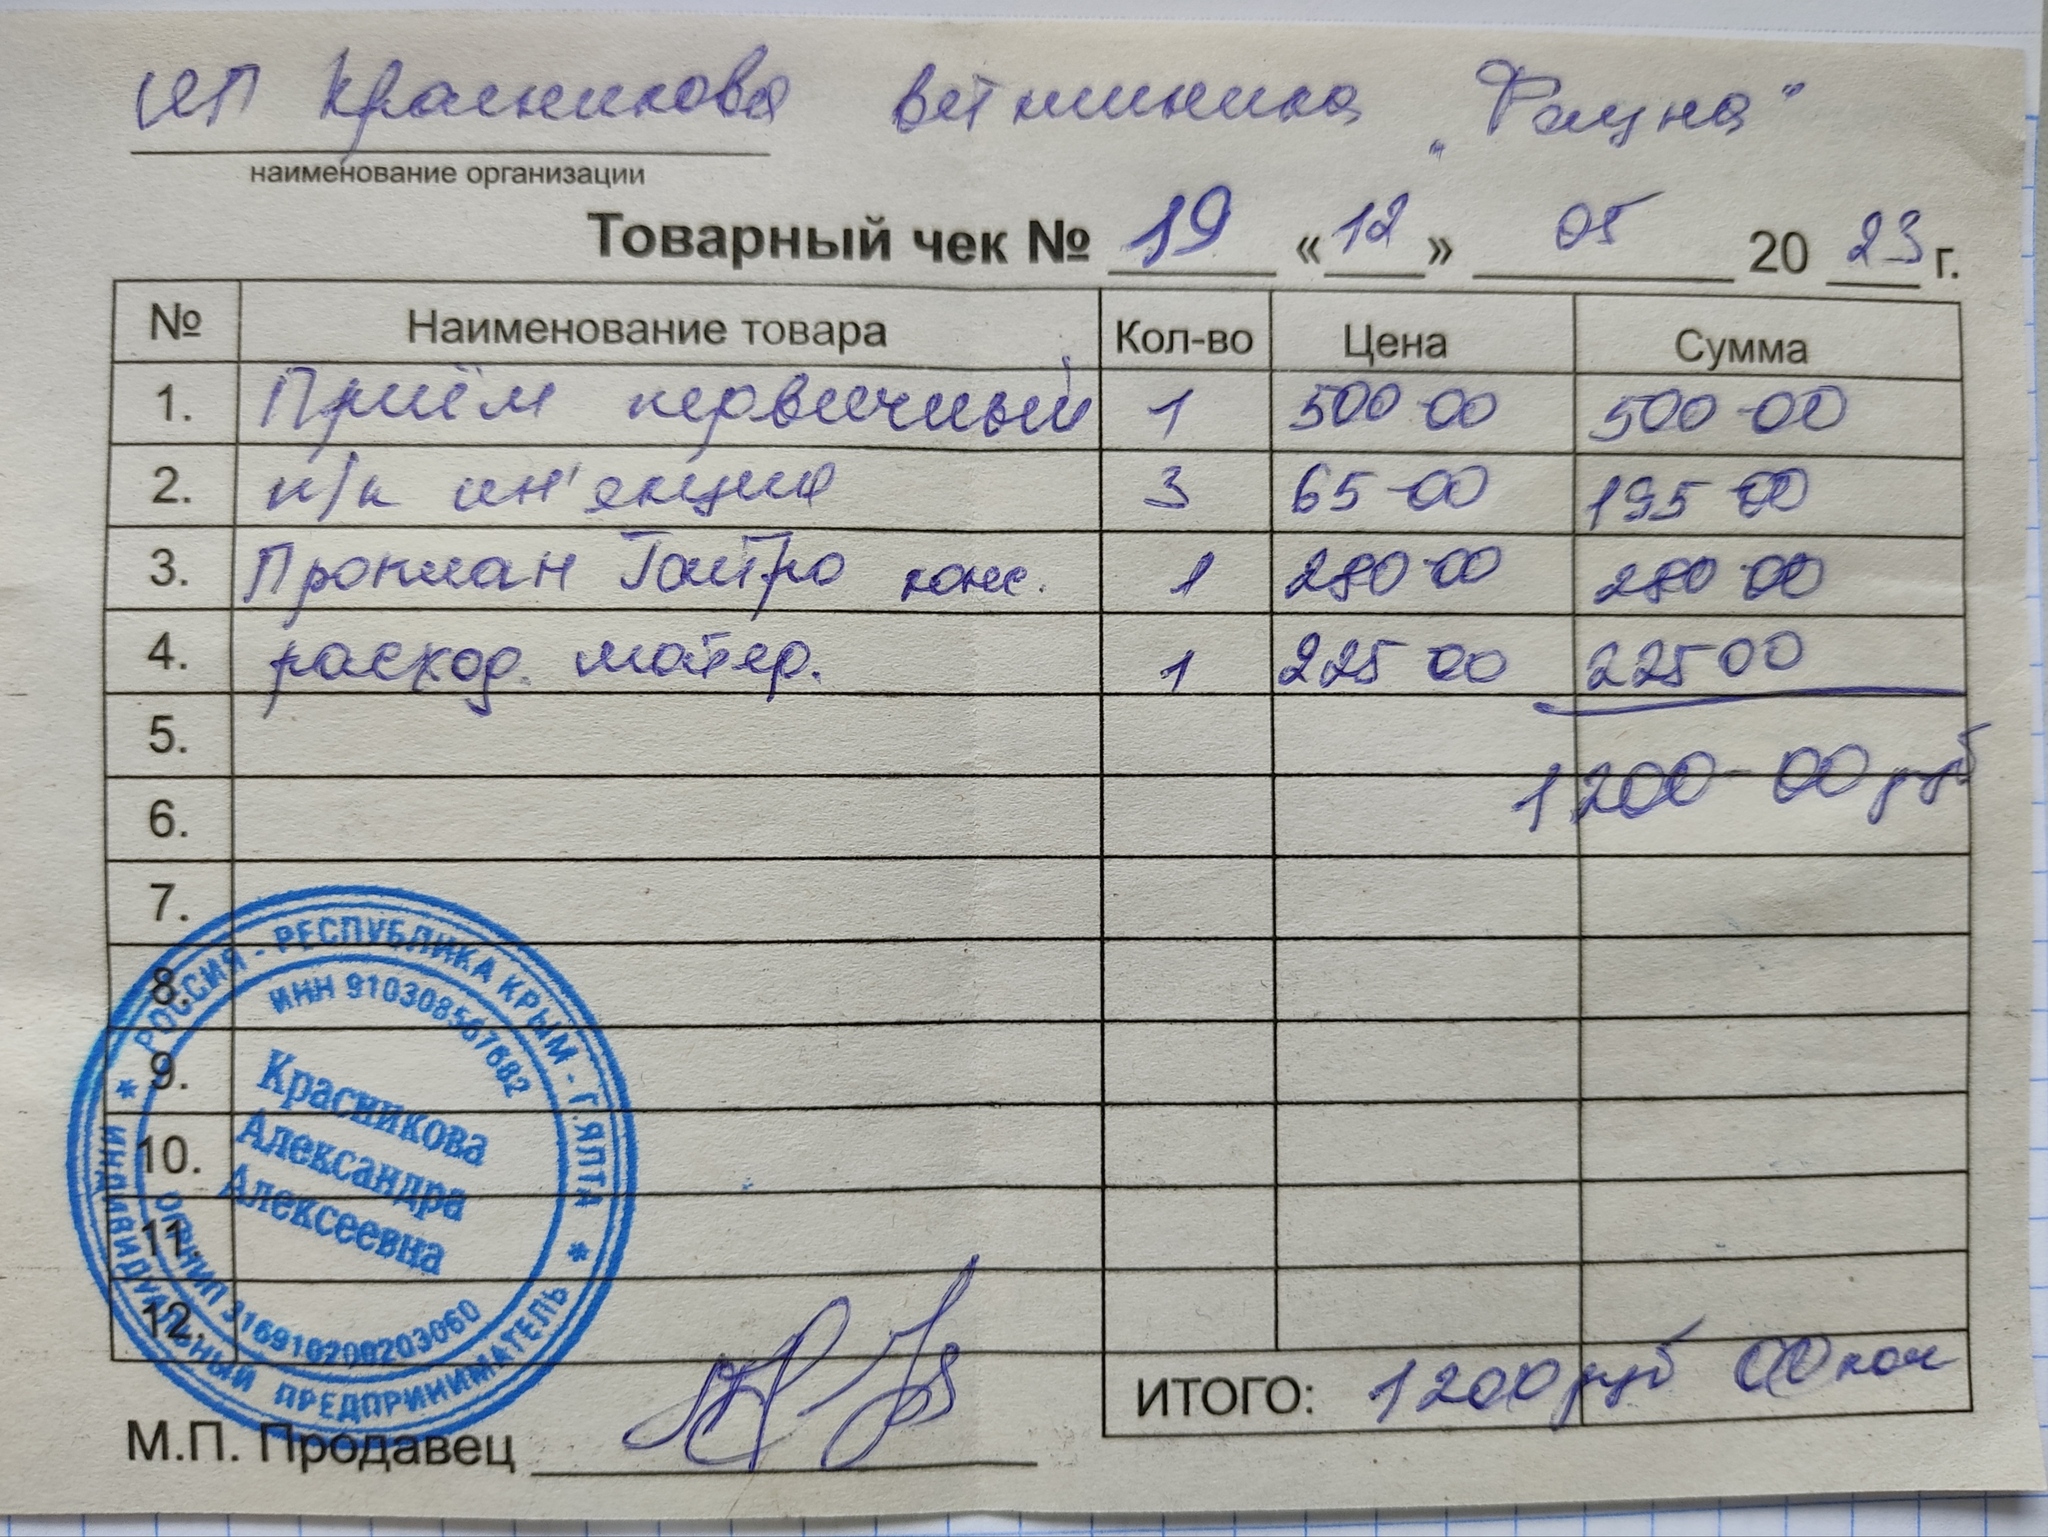 ИП Красникова Ветклиника „Фауна"
наименование организации
Товарный чек № 19 «12» 05 2023 г.
№ Наименование товара Кол-во Цена Сумма
1. Приём первичный 1 500-00 500-00
2. п/к ин'екция 3 65-00 195-00
3. Проплан Гастро конс. 1 280-00 280-00
4. расход. матер. 1 225 00 225 00
5.
1200-00 руб
6.
7.
8.
9.
10.
11.
12.
ИТОГО: 1200 руб 00 коп
М.П. Продавец
РОССИЯ - РЕСПУБЛИКА КРЫМ - Г.ЯЛТА
ИНН 910308567682
Красникова
Александра
Алексеевна
ОГРНИП 316910200203060
* ИНДИВИДУАЛЬНЫЙ ПРЕДПРИНИМАТЕЛЬ *